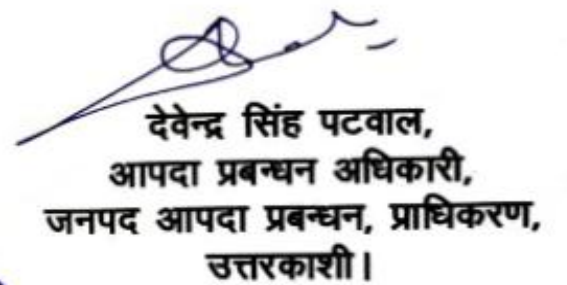 देवेन्द्र सिंह पटवाल,
आपदा प्रबन्धन अधिकारी,
जनपद आपदा प्रबन्धन, प्राधिकरण,
उत्तरकाशी।